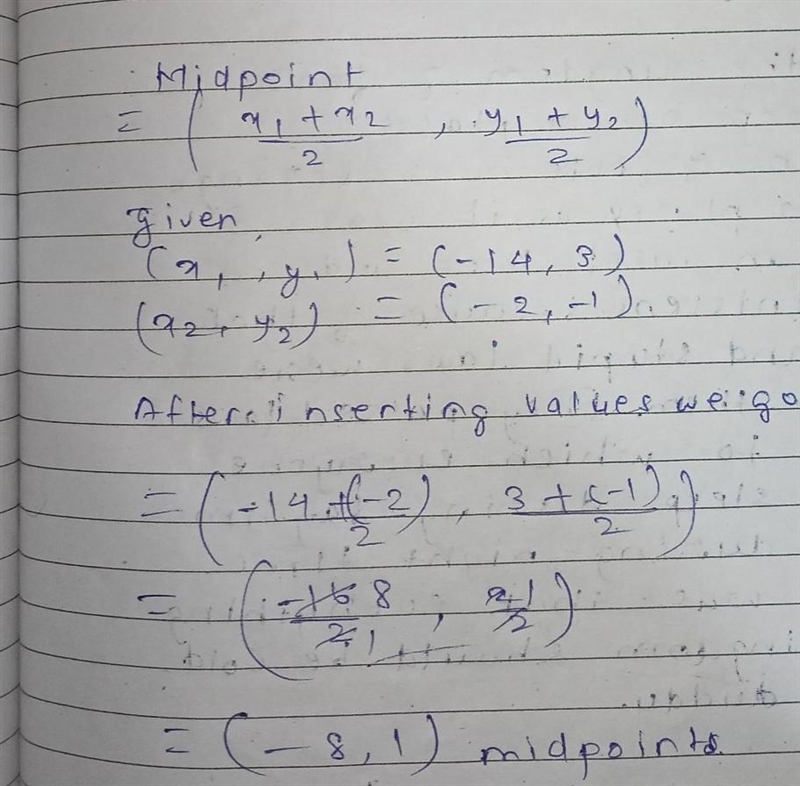 Midpoint
= ( x1 + x2 / 2 , y1 + y2 / 2 )
given,
(x1, y1) = (-14, 3)
(x2, y2) = (-2, -1).
After inserting values we go
= ( -14 + (-2) / 2 , 3 + (-1) / 2 )
= ( -16 8 / 2 1 , 2 1 / 2 )
= (-8, 1) midpoints